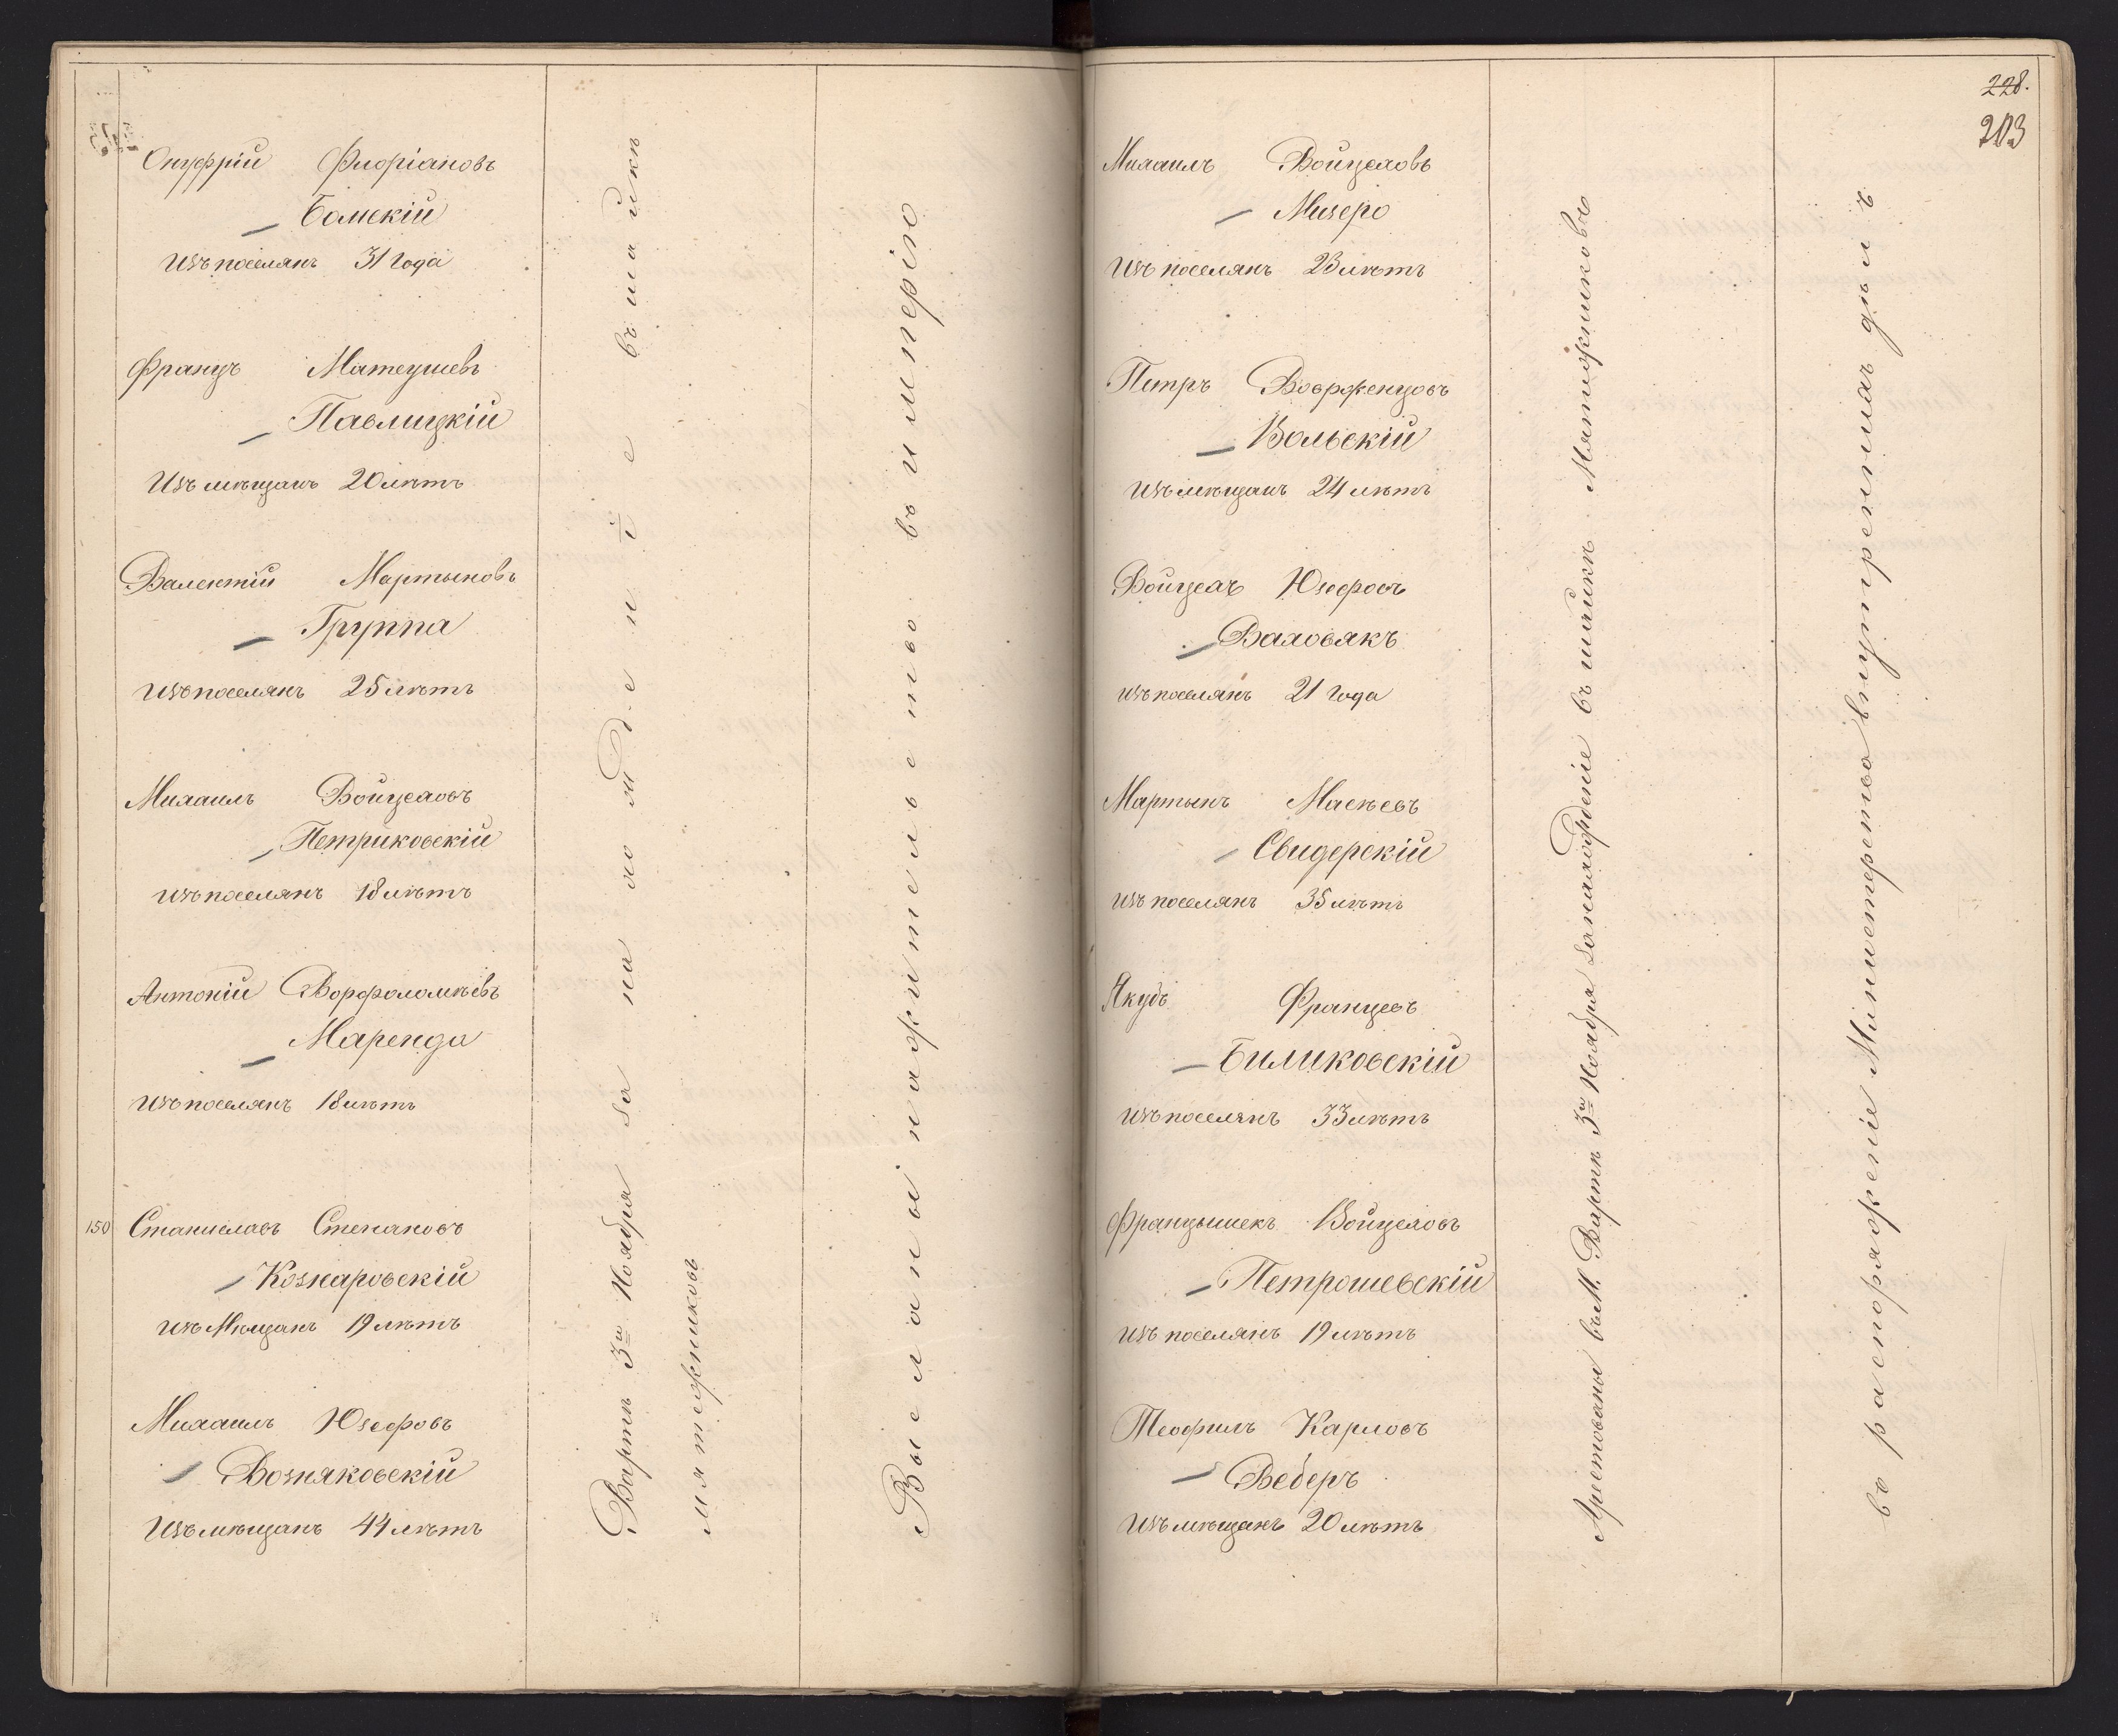 Онуфрій Флоріановъ
Бомскій
Изъ поселянъ 31 года
Францъ Матеушевъ
Павлицкій
Изъ мѣщанъ 20 лѣтъ
Валентій Мартыновъ
Группа
Изъ поселянъ 25 лѣтъ
Михаилъ Войцеховъ
Петриковскій
Изъ поселянъ 18 лѣтъ
Антоній Ворфоломѣевъ
Маренда
Изъ поселянъ 18 лѣтъ
150 Станиславъ Степановъ
Кознаровскій
Изъ Мѣщанъ 19 лѣтъ
Михаилъ Юзефовъ
Возняковскій
Изъ мѣщанъ 44 лѣтъ
Вартѣ 3го Ноября за нахожденіе въ шайкѣ
мятежниковъ
Высланы на жительство въ имперію
228.
203
Михаилъ Войцеховъ
Мизеро
Изъ поселянъ 23 лѣтъ
Петръ Вавржендовъ
Вольскій
Изъ мѣщанъ 24 лѣтъ
Войцехъ Юзефовъ
Ваховякъ
Изъ поселянъ 21 года
Мартынъ Маѣевъ
Свидерскій
Изъ поселянъ 35 лѣтъ
Якубъ Францевъ
Биликовскій
Изъ поселянъ 33 лѣтъ
Францышекъ Войцеховъ
Петрошевскій
Изъ поселянъ 19 лѣтъ
Теофилъ Карловъ
Веберъ
Изъ мѣщанъ 20 лѣтъ
Арестованы въ М. Вартѣ 3го Ноября за нахожденіе въ шайкѣ Мятежниковъ
въ распоряженіе Министерства внутреннихъ дѣлъ